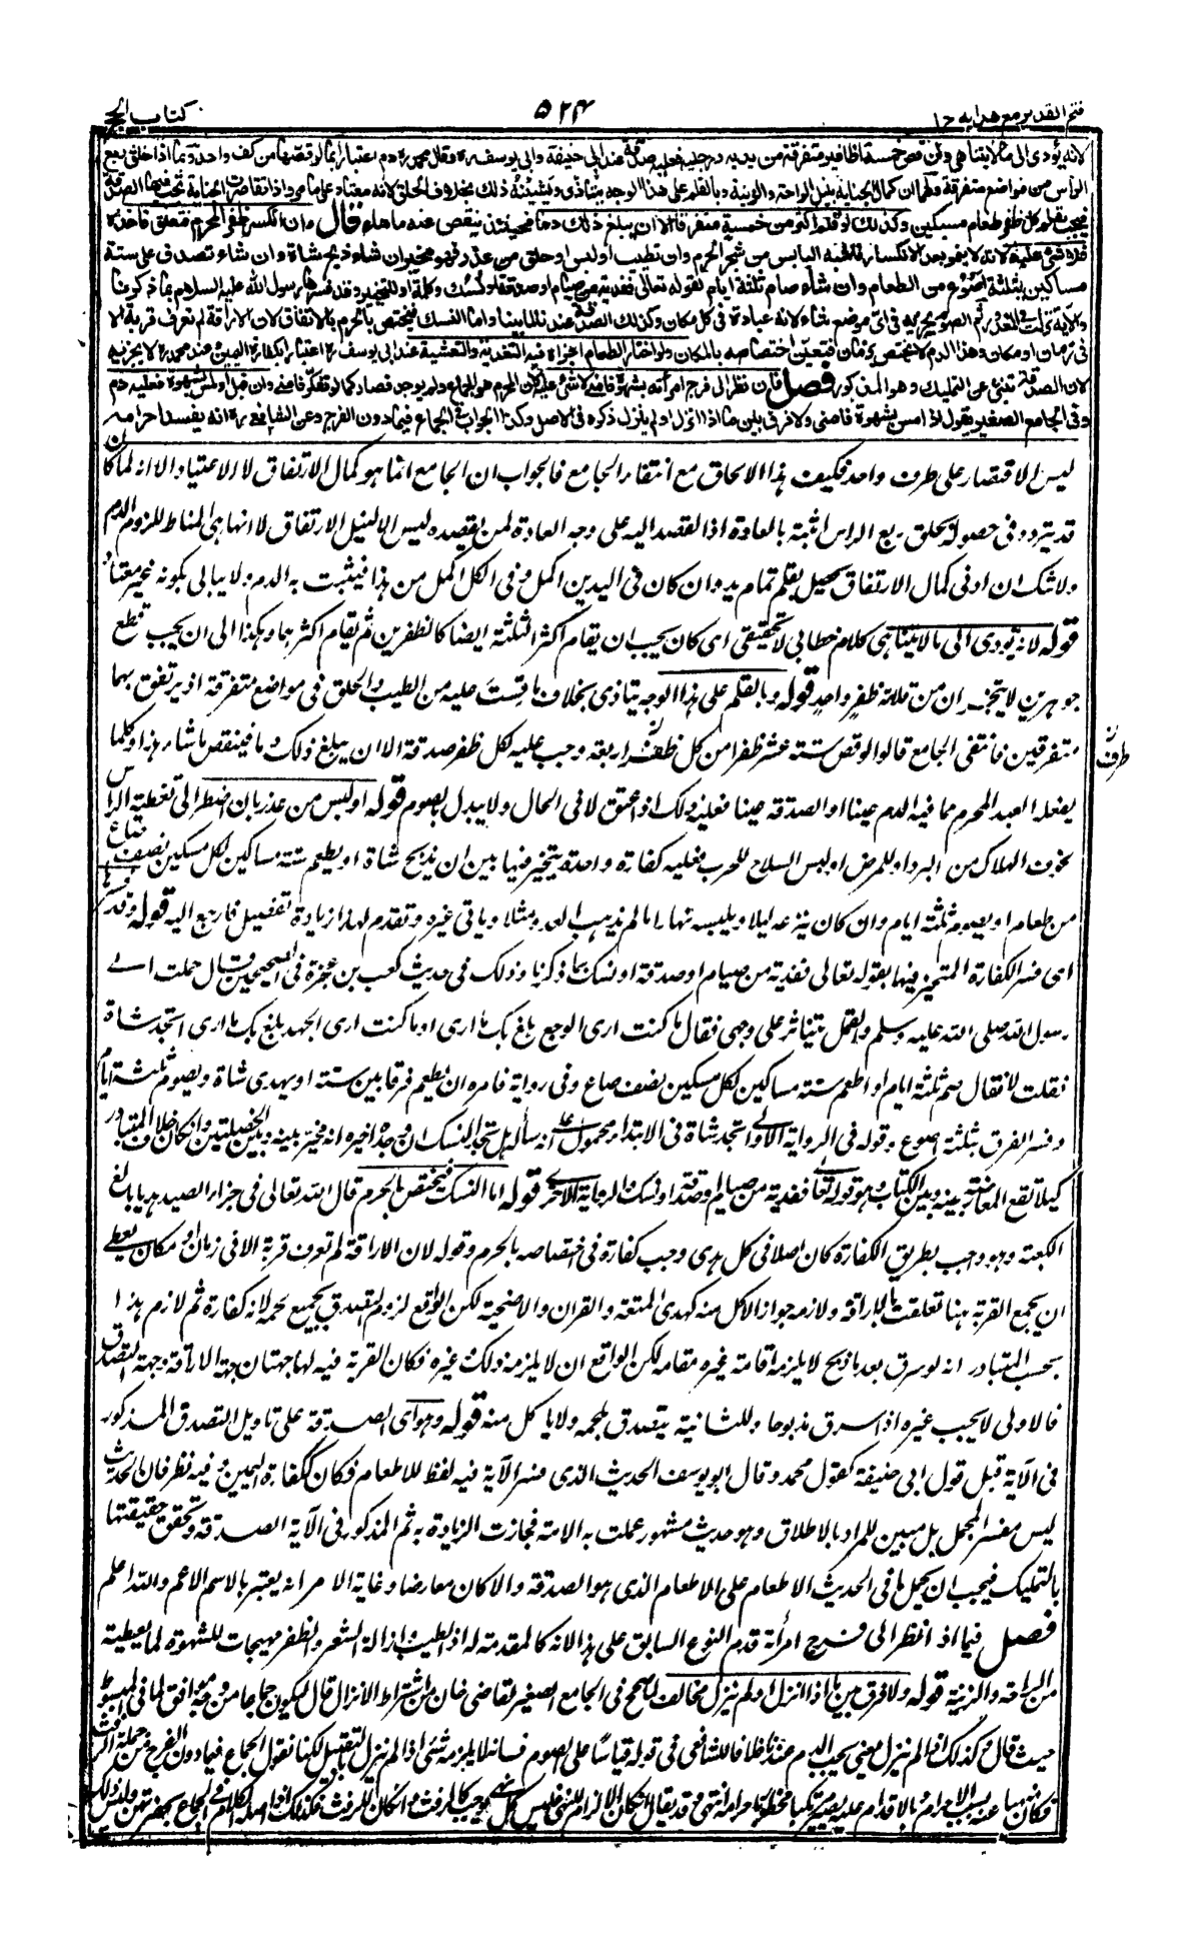 فتح القدير مع هدايه ج ا
۵۲۴
كتاب الحج
لانه يؤدى الى مالا يتناهى وان قص خمسة اظافير متفرقة من يديه ورجليه فعليه صدقة عند ابى حنيفة وابى يوسف رح وقال محمد رح دم اعتبارا بما لو قصها من كف واحدة وبما اذا حلق ربع
الرأس من مواضع متفرقة ولهما ان كمال الجناية بنيل الراحة والزينة وبالقلم على هذا الوجه يتأذى ويشينه ذلك بخلاف الحلق لانه معتاد على ما مر واذا تقاصرت الجناية تجب فيها الصدقة
فيجب بقلم كل ظفر طعام مسكين وكذلك لو قلم اكثر من خمسة متفرقا الا ان يبلغ ذلك دما فحينئذ ينقص عنه ما شاء قال وان انكسر ظفر المحرم فتعلق فاخذه
فلا شئ عليه لانه لا ينمو بعد الانكسار فاشبه اليابس من شجر الحرم وان تطيب او لبس او حلق من عذر فهو مخير ان شاء ذبح شاة وان شاء تصدق على ستة
مساكين بثلثة اصوع من الطعام وان شاء صام ثلثة ايام لقوله تعالى ففدية من صيام او صدقة او نسك وكلمة او للتخيير وقد فسرها رسول الله عليه السلام بما ذكرنا
والآية نزلت فى المعذور ثم الصوم يجزيه فى اى موضع شاء لانه عبادة فى كل مكان وكذلك الصدقة عندنا لما بينا واما النسك فيختص بالحرم بالاتفاق لان الاراقة لم تعرف قربة الا
فى زمان او مكان وهذا الدم لا يختص بزمان فتعين اختصاصه بالمكان ولو اختار الطعام اجزاه فيه التغدية والتعشية عند ابى يوسف رح اعتبارا بكفارة اليمين وعند محمد رح لا يجزيه
لان الصدقة تنبئ عن التمليك وهو المذكور فصل فان نظر الى فرج امرأته بشهوة فامنى لا شئ عليه لان المحرم هو الجماع ولم يوجد فصار كما لو تفكر فامنى وان قبل او لمس بشهوة فعليه دم
وفى الجامع الصغير يقول اذا مس بشهوة فامنى ولا فرق بين ما اذا انزل او لم ينزل ذكره فى الاصل وكذا الجواب فى الجماع فيما دون الفرج وعن الشافعى رح انه يفسد احرامه
ليس الاقتصار على طرف واحد فكيف هذا الالحاق مع انتفاء الجامع فالجواب ان الجامع انما هو كمال الارتفاق لا الاعتياد الا انه لما كان
قد يتردد فى حصوله بحلق ربع الراس اثبته بالعادة اذ القصد اليه على وجه العادة لمن يقصده ليس الا لنيل الارتفاق لا انها هى المناط للزوم الدم
ولا شك ان ادنى كمال الارتفاق يحصل بقلم تمام يد وان كان فى اليدين اكمل وفى الكل اكمل من هذا فيثبت به الدم ولا يبالى بكونه غير معتاد
قوله لانه يودى الى مالا يتناهى كلام خطابى لا تحقيقى اى كان يجب ان يقام اكثر الثلثة ايضا كالظفرين ثم يقام اكثرهما وهكذا الى ان يجب بقطع
جوهرين لا يتجزءان من قلامة ظفر واحد قوله وبالقلم على هذا الوجه يتاذى بخلاف ما قست عليه من الطيب والحلق فى مواضع متفرقة اذ يرتفق بهما
متفرقين فانتفى الجامع قالوا لو قص ستة عشر ظفرا من كل طرف اربعة وجب عليه لكل ظفر صدقة الا ان يبلغ ذلك دما فينقص ما شاء هذا وكلما
طرف
يفعله العبد المحرم مما فيه الدم عينا او الصدقة عينا فعليه ذلك اذا عتق لا فى الحال ولا يبدل بالصوم قوله او لبس من عذر بان اضطر الى تغطية الراس
لخوف الهلاك من البرد او للمرض او لبس السلاح للحرب فعليه كفارة واحدة يتخير فيها بين ان يذبح شاة او يطعم ستة مساكين لكل مسكين نصف صاع
من طعام او يصوم ثلثة ايام وان كان ينزعه ليلا ويلبسه نهارا ما لم يذهب العدو مثلا وياتى غيره وتقدم لهذا زيادة تفصيل فارجع اليه قوله وقد فسرها
اى فسر الكفارة المتخير فيها بقوله تعالى ففدية من صيام او صدقة او نسك بما ذكرنا وذلك فى حديث كعب بن عجرة فى الصحيحين قال حملت الى
رسول الله صلى الله عليه وسلم والقمل يتناثر على وجهى فقال ما كنت ارى الوجع بلغ بك ما ارى او ما كنت ارى الجهد بلغ بك ما ارى اتجد شاة
فقلت لا فقال صم ثلثة ايام او اطعم ستة مساكين لكل مسكين نصف صاع وفى رواية فامره ان يطعم فرقا بين ستة او يهدى شاة او يصوم ثلثة ايام
وفسر الفرق بثلثة اصوع وقوله فى الرواية الاولى اتجد شاة فى الابتداء محمول على انه سأله هل تجد النسك فان وجده اخبره انه مخير بينه وبين الخصلتين وان كان خلاف المتبادر
كيلا تقع المعارضة بينه وبين الكتاب وهو قوله تعالى ففدية من صيام او صدقة او نسك والرواية الاخرى قوله اما النسك فيختص بالحرم قال الله تعالى فى جزاء الصيد هديا بالغ
الكعبة وهو وجب بطريق الكفارة كان اصلا فى كل هدى وجب كفارة فى اختصاصه بالحرم وقوله لان الاراقة لم تعرف قربة الا فى زمان او مكان يعطى
ان جميع القربة هنا تعلقت بالاراقة ولازمه جواز الاكل منه كهدى المتعة والقران والاضحية لكن الواقع لزوم التصدق بجميع لحمه لانه كفارة ثم لازم هذا
بحسب المتبادر انه لو سرق بعد ما ذبح لا يلزمه اقامة غيره مقامه لكن الواقع ان لا يلزمه ذلك غيره فكان القربة فيه لها جهتان جهة الاراقة وجهة التصدق
فالاولى لا يجب غيره اذا سرق مذبوحا وللثانية يتصدق بلحمه ولا ياكل منه قوله وهو اى الصدقة على تاويل التصدق المذكور
فى الآية قيل قول ابى حنيفة كقول محمد وقال ابو يوسف الحديث الذى فسر الآية فيه لفظ للاطعام فكان ككفارة اليمين وفيه نظر فان الحديث
ليس مفسر المجمل بل مبين للمراد بالاطلاق وهو حديث مشهور عملت به الامة فجازت الزيادة به ثم المذكور فى الآية الصدقة وتحقق حقيقتها
بالتمليك فيجب ان يحمل ما فى الحديث الاطعام على الاطعام الذى هو الصدقة والا كان معارضا وغاية الامر انه يعتبر بالاسم الاعم والله اعلم
فصل فيما اذا نظر الى فرج امرأته قدم النوع السابق على هذا لانه كالمقدمة له اذ الطيب وازالة الشعر والظفر مهيجات للشهوة لما يعطيه
من الراحة والزينة قوله ولا فرق بين ما اذا انزل او لم ينزل مخالف لما صحح فى الجامع الصغير لقاضى خان من اشتراط الانزال قال ليكون جماعا من وجه موافق لما فى المبسوط
حيث قال وكذلك اذا لم ينزل يعنى يجب الدم عندنا خلافا للشافعى فى قوله قياسا على الصوم فانه لا يلزمه شئ اذا لم ينزل بالتقبيل لكنا نقول الجماع فيما دون الفرج من جملة الرفث
فكان منهيا عنه بسبب الاحرام وبالاقدام عليه يصير مرتكبا محظور احرامه انتهى وقد يقال ان كان الالزام للنهى فليس كل نهى يوجب كالرفث وان كان للرفث فكذلك اذ اصله الكلام فى الجماع بحضرتهن وليس ذلك